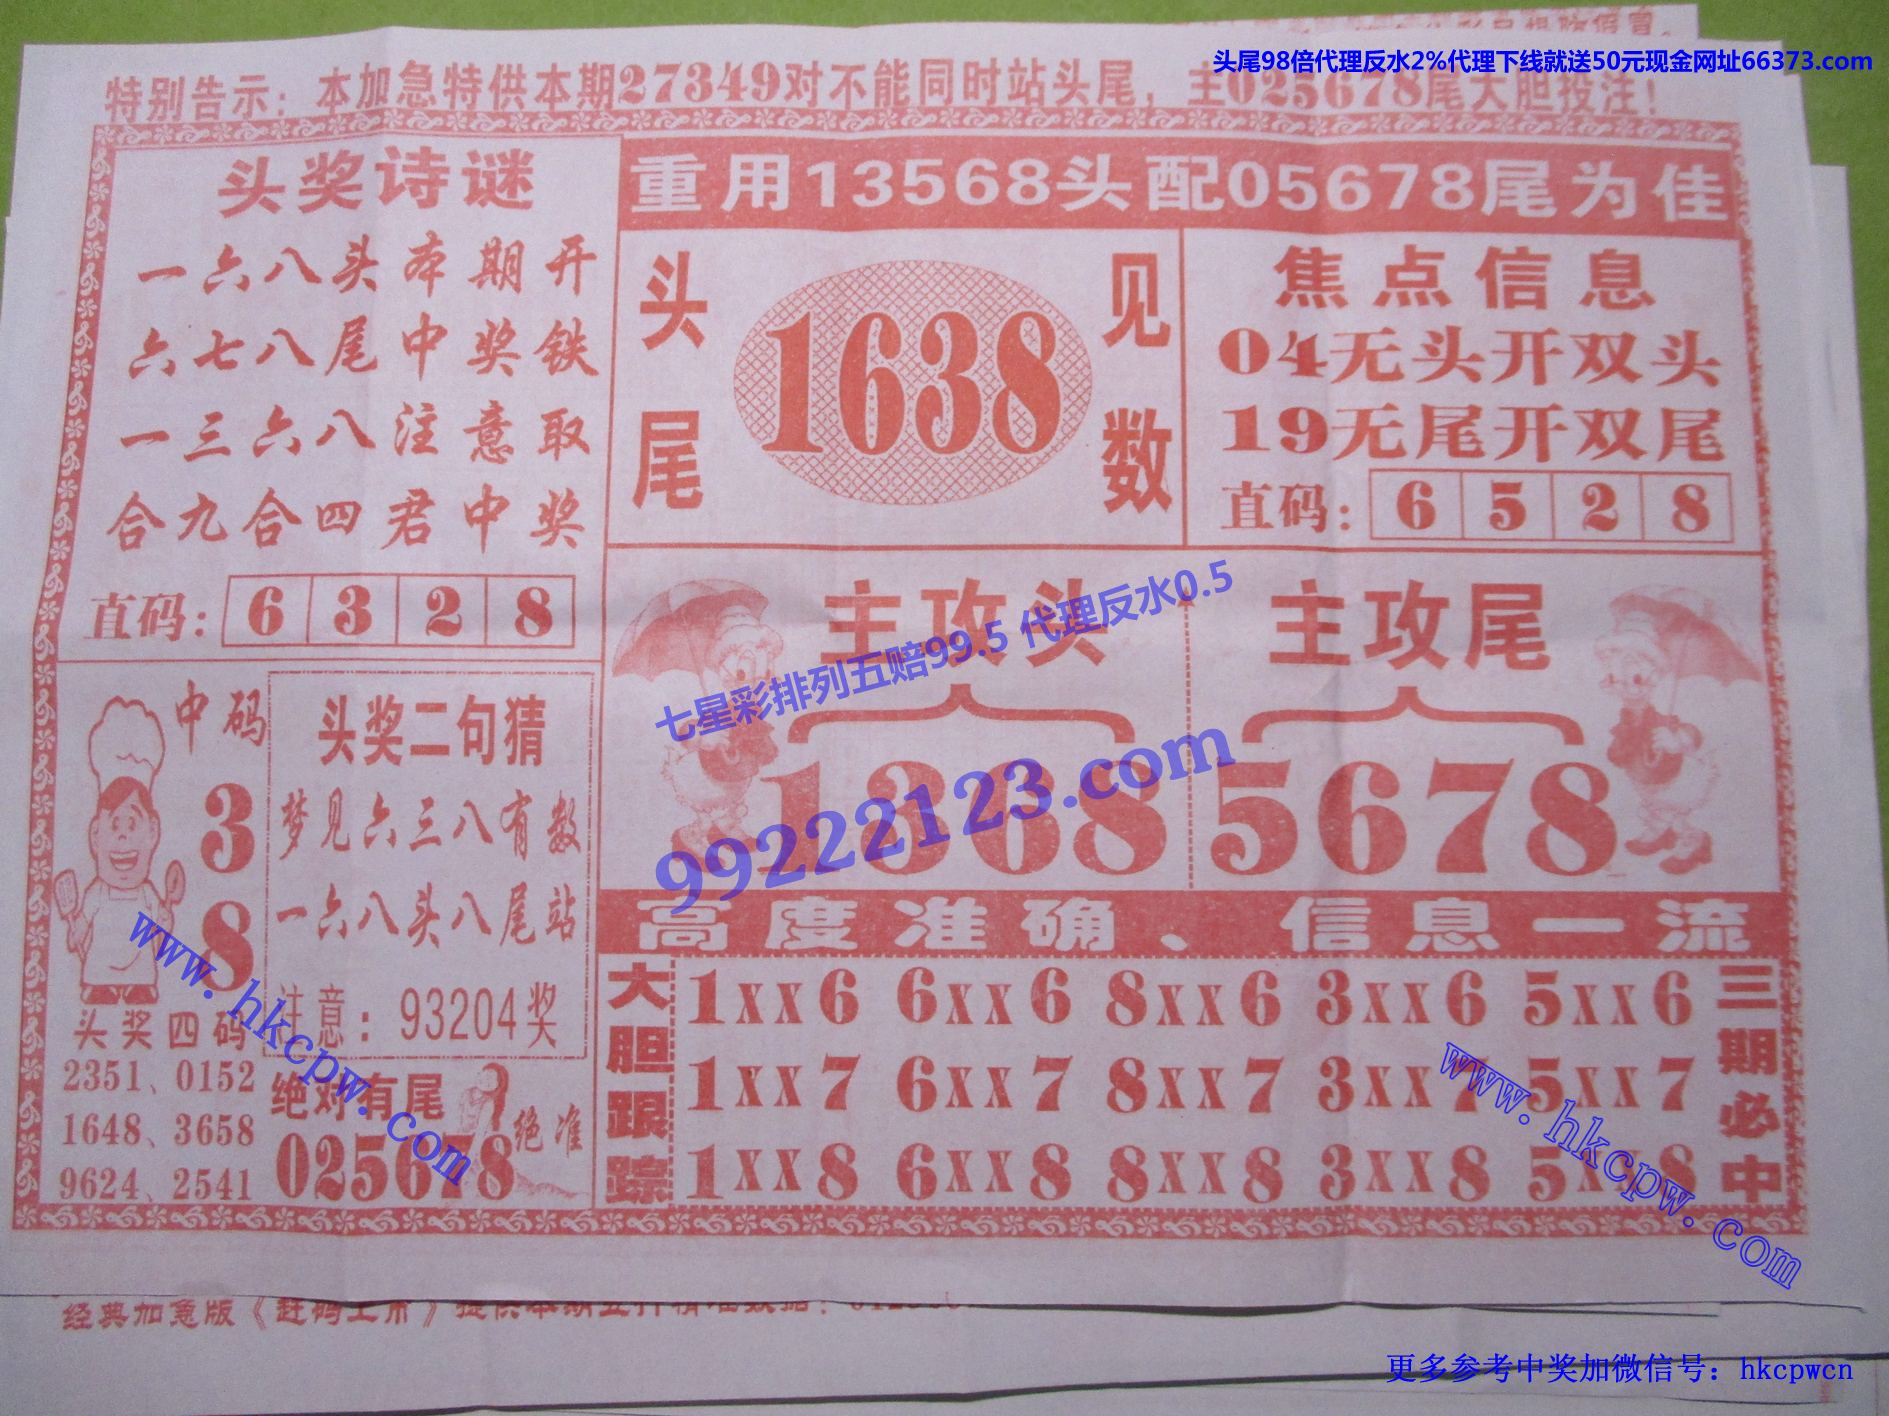 头尾98倍代理反水2%代理下线就送50元现金网址66373.com
特别告示：本加急特供本期27349对不能同时站头尾，主025678尾大胆投注！
头奖诗谜
一六八头本期开
六七八尾中奖铁
一三六八注意取
合九合四君中奖
直码：6328
重用13568头配05678尾为佳
头尾
1638
见数
焦点信息
04无头开双头
19无尾开双尾
直码：6528
主攻头
1368
主攻尾
5678
七星彩排列五赔99.5 代理反水0.5
99222123.com
中码
3
8
头奖四码
2351、0152
1648、3658
9624、2541
头奖二句猜
梦见六三八有数
一六八头八尾站
注意：93204奖
绝对有尾
025678
绝准
高度准确、信息一流
大胆跟踪
1xx6 6xx6 8xx6 3xx6 5xx6
1xx7 6xx7 8xx7 3xx7 5xx7
1xx8 6xx8 8xx8 3xx8 5xx8
三期必中
www.hkcpw.com
www.hkcpw.com
经典加急版《赶码上市》提供本期
更多参考中奖加微信号：hkcpwcn